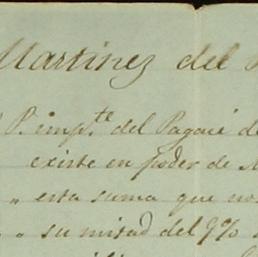 Martinez del
P. imp.te del Pagaré de
existe en poder de
„ esta suma que no
„ su mitad del 9%